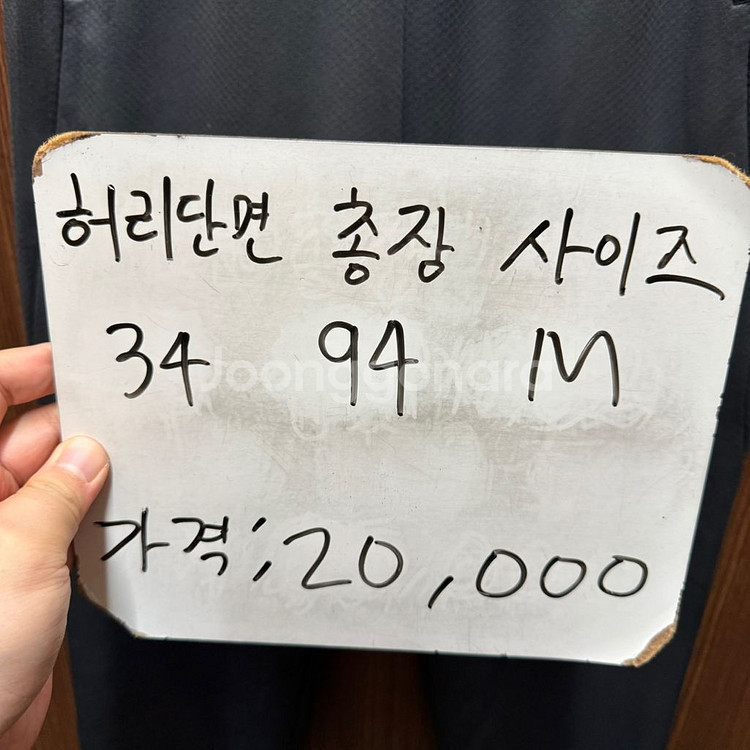 허리단면 총장 사이즈
34 94 M
Joonggonara
가격; 20,000